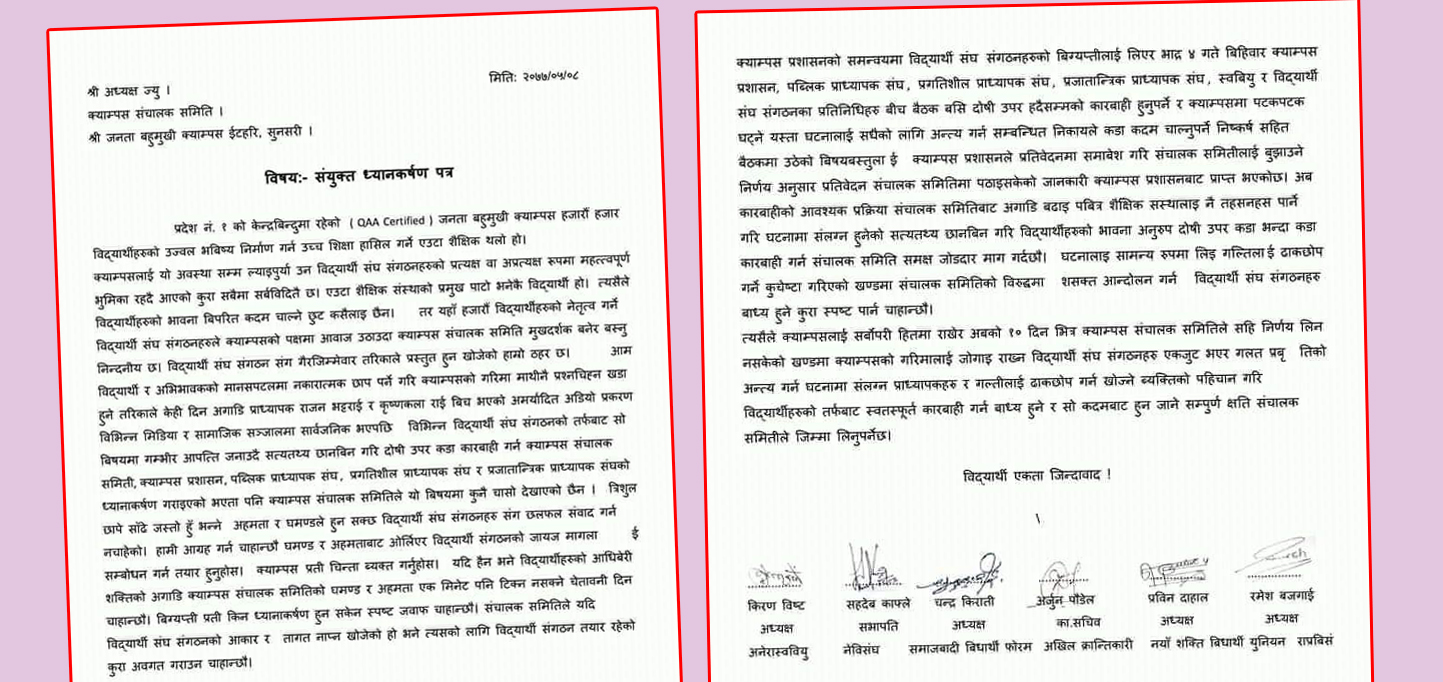 मिति: २०७७/०५/०८
श्री अध्यक्ष ज्यु ।
क्याम्पस संचालक समिति ।
श्री जनता बहुमुखी क्याम्पस ईटहरि, सुनसरी ।
विषय:- संयुक्त ध्यानकर्षण पत्र
प्रदेश नं. १ को केन्द्रबिन्दुमा रहेको ( QAA Certified ) जनता बहुमुखी क्याम्पस हजारौं हजार
विद्यार्थीहरुको उज्वल भबिष्य निर्माण गर्न उच्च शिक्षा हासिल गर्ने एउटा शैक्षिक थलो हो।
क्याम्पसलाई यो अवस्था सम्म ल्याइपुर्या उन विद्यार्थी संघ संगठनहरुको प्रत्यक्ष वा अप्रत्यक्ष रूपमा महत्त्वपूर्ण
भुमिका रहदै आएको कुरा सबैमा सर्बविदितै छ। एउटा शैक्षिक संस्थाको प्रमुख पाटो भनेकै विद्यार्थी हो। त्यसैले
विद्यार्थीहरुको भावना बिपरित कदम चाल्ने छुट कसैलाइ छैन। तर यहाँ हजारौं विद्यार्थीहरुको नेतृत्व गर्ने
विद्यार्थी संघ संगठनहरुले क्याम्पसको पक्षमा आवाज उठाउदा क्याम्पस संचालक समिति मुखदर्शक बनेर बस्नु
निन्दनीय छ। विद्यार्थी संघ संगठन संग गैरजिम्मेवार तरिकाले प्रस्तुत हुन खोजेको हाम्रो ठहर छ। आम
विद्यार्थी र अभिभावकको मानसपटलमा नकारात्मक छाप पर्ने गरि क्याम्पसको गरिमा माथीनै प्रश्नचिह्न खडा
हुने तरिकाले केही दिन अगाडि प्राध्यापक राजन भट्टराई र कृष्णकला राई बिच भएको अमर्यादित अडियो प्रकरण
विभिन्न मिडिया र सामाजिक सञ्जालमा सार्वजनिक भएपछि विभिन्न विद्यार्थी संघ संगठनको तर्फबाट सो
बिषयमा गम्भीर आपत्ति जनाउदै सत्यतथ्य छानबिन गरि दोषी उपर कडा कारबाही गर्न क्याम्पस संचालक
समिती, क्याम्पस प्रशासन, पब्लिक प्राध्यापक संघ, प्रगतिशील प्राध्यापक संघ र प्रजातान्त्रिक प्राध्यापक संघको
ध्यानाकर्षण गराइएको भएता पनि क्याम्पस संचालक समितिले यो बिषयमा कुनै चासो देखाएको छैन । त्रिशुल
छापे साँढे जस्तो हूँ भन्ने अहमता र घमण्डले हुन सक्छ विद्यार्थी संघ संगठनहरु संग छलफल संवाद गर्न
नचाहेको। हामी आग्रह गर्न चाहान्छौ घमण्ड र अहमताबाट ओर्लिएर विद्यार्थी संगठनको जायज मागला ई
सम्बोधन गर्न तयार हुनुहोस। क्याम्पस प्रती चिन्ता ब्यक्त गर्नुहोस। यदि हैन भने विद्यार्थीहरुको आधिबेरी
शक्तिको अगाडि क्याम्पस संचालक समितिको घमण्ड र अहमता एक मिनेट पनि टिक्न नसक्ने चेतावनी दिन
चाहान्छौ। बिग्यप्ती प्रती किन ध्यानाकर्षण हुन सकेन स्पष्ट जवाफ चाहान्छौ। संचालक समितिले यदि
विद्यार्थी संघ संगठनको आकार र तागत नाप्न खोजेको हो भने त्यसको लागि विद्यार्थी संगठन तयार रहेको
कुरा अवगत गराउन चाहान्छौ।
क्याम्पस प्रशासनको समन्वयमा विद्यार्थी संघ संगठनहरुको बिग्यप्तीलाई लिएर भाद्र ४ गते बिहिवार क्याम्पस
प्रशासन, पब्लिक प्राध्यापक संघ, प्रगतिशील प्राध्यापक संघ, प्रजातान्त्रिक प्राध्यापक संघ, स्वबियु र विद्यार्थी
संघ संगठनका प्रतिनिधिहरु बीच बैठक बसि दोषी उपर हदैसम्मको कारबाही हुनुपर्ने र क्याम्पसमा पटकपटक
घट्ने यस्ता घटनालाई सधैको लागि अन्त्य गर्न सम्बन्धित निकायले कडा कदम चाल्नुपर्ने निष्कर्ष सहित
बैठकमा उठेको बिषयबस्तुला ई क्याम्पस प्रशासनले प्रतिवेदनमा समाबेश गरि संचालक समितीलाई बुझाउने
निर्णय अनुसार प्रतिवेदन संचालक समितिमा पठाइसकेको जानकारी क्याम्पस प्रशासनबाट प्राप्त भएकोछ। अब
कारबाहीको आवश्यक प्रक्रिया संचालक समितिबाट अगाडि बढाइ पबित्र शैक्षिक सस्थालाइ नै तहसनहस पार्ने
गरि घटनामा संलग्न हुनेको सत्यतथ्य छानबिन गरि विद्यार्थीहरुको भावना अनुरुप दोषी उपर कडा भन्दा कडा
कारबाही गर्न संचालक समिति समक्ष जोडदार माग गर्दछौ। घटनालाइ सामन्य रुपमा लिइ गल्तिलाई ढाकछोप
गर्ने कुचेष्टा गरिएको खण्डमा संचालक समितिको विरुद्धमा शसक्त आन्दोलन गर्न विद्यार्थी संघ संगठनहरु
बाध्य हुने कुरा स्पष्ट पार्न चाहान्छौ।
त्यसैले क्याम्पसलाई सर्बोपरी हितमा राखेर अबको १० दिन भित्र क्याम्पस संचालक समितिले सहि निर्णय लिन
नसकेको खण्डमा क्याम्पसको गरिमालाई जोगाइ राख्न विद्यार्थी संघ संगठनहरु एकजुट भएर गलत प्रबृ तिको
अन्त्य गर्न घटनामा संलग्न प्राध्यापकहरु र गल्तीलाई ढाकछोप गर्न खोज्ने ब्यक्तिको पहिचान गरि
विद्यार्थीहरुको तर्फबाट स्वतस्फूर्त कारबाही गर्न बाध्य हुने र सो कदमबाट हुन जाने सम्पुर्ण क्षति संचालक
समितीले जिम्मा लिनुपर्नेछ।
विद्यार्थी एकता जिन्दावाद !
किरण विष्ट सहदेब काफ्ले चन्द्र किराती अर्जुन पौडेल प्रविन दाहाल रमेश बजगाई
अध्यक्ष सभापति अध्यक्ष का.सचिव अध्यक्ष अध्यक्ष
अनेरास्ववियु नेविसंघ समाजबादी बिधार्थी फोरम अखिल क्रान्तिकारी नयाँ शक्ति बिधार्थी युनियन राप्रबिसं